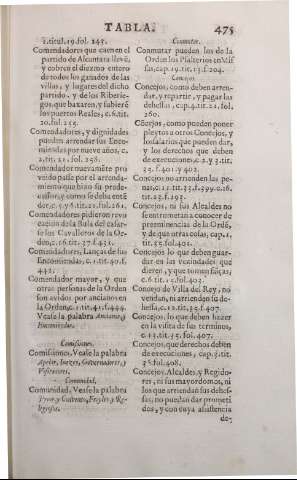 TABLA. 475
2. titul. 19. fol. 245.
Comendadores que caen en el
partido de Alcantara llevē,
y cobren el diezmo entero
de todos los ganados de las
villas, y lugares del dicho
partido, y de los Riberiegos,
que baxaren, y subierē
los puertos Reales, c. 6. tit.
20. fol. 255.
Comendadores, y dignidades
pueden arrendar sus Encomiendas
por nueve años, c.
2. tit. 21. fol. 258.
Comendador nuevamẽte proveido
passe por el arrendamiento
que hizo su predecessor,
y como se deba entēder,
c. 5. y 6. tit. 21. fol. 261.
Comendadores pidieron revocacion
de la Bula del casarse
los Cavalleros de la Orden,
c. 16. tit. 37. f. 431.
Comendadores, Lanças de sus
Encomiendas, c. 1. tit. 40. f.
432.
Comendador mayor, y que
otras personas de la Orden
son avidos por ancianos en
la Orden, c. 1. tit. 41. f. 444.
Vease la palabra Ancianos, y
Encomiendas.
Comissiones.
Comissiones, Vease la palabra
Apelar, Iuezes, Governadores, y
Visitadores.
Comunidad.
Comunidad, Vease la palabra
Prior, y Convento, Freyles, y Religiosos.
Conmutar.
Conmutar pueden los de la
Orden los Psalterios en Missas,
cap. 19. tit. 13. f. 204.
Concejos.
Concejos, como deben arrendar,
y repartir, y pagar las
dehesas, cap. 4. tit. 21. fol.
260.
Cōcejos, como pueden poner
pleytos a otros Concejos, y
los salarios que pueden dar,
y los derechos que deben
de execuciones, c. 2. y 3. tit.
35. f. 401. y 402.
Concejos no arrienden las penas,
c. 12. tit. 33. f. 399. c. 16.
tit. 23. f. 293.
Concejos, ni sus Alcaldes no
se entrometan a conocer de
preeminencias de la Ordē,
y de que otras cosas, cap. 1.
tit. 35. fol. 401.
Concejos lo que deben guardar
en las vezindades que
dieren, y que tomen fianças,
c. 6. tit. 15. fol. 403.
Concejo de Villa del Rey, no
vendan, ni arrienden su dehesa,
c. 12. tit. 35. f. 407.
Concejos, lo que deben hazer
en la visita de sus terminos,
c. 13. tit. 35. fol. 407.
Concejos, que derechos deben
de execuciones, cap. 3. tit.
35. fol. 408.
Concejos, Alcaldes, y Regidores,
ni sus mayordomos, ni
los que arriendan sus dehessas,
no puedan dar prometidos,
y con cuya assistencia
de-